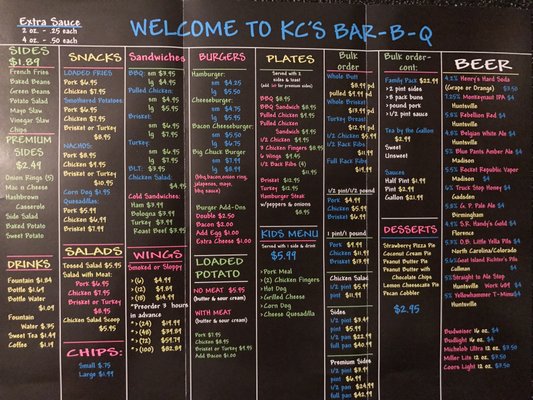 Extra Sauce
2 oz. - .25 each
4 oz. - .50 each
WELCOME TO KC'S BAR-B-Q
SIDES
$1.89
French Fries
Baked Beans
Green Beans
Potato Salad
Mayo Slaw
Vinegar Slaw
Chips
PREMIUM
SIDES
$2.49
Onion Rings (5)
Mac n Cheese
Hashbrown
Casserole
Side Salad
Baked Potato
Sweet Potato
DRINKS
Fountain $1.84
Bottle $1.69
Bottle Water
$1.09
Fountain
Water $.35
Sweet Tea $1.49
Coffee $1.19
SNACKS
LOADED FRIES:
Pork $6.95
Chicken $7.95
Smothered Potatoes:
Pork $6.95
Chicken $7.95
Brisket or Turkey
$8.95
NACHOS:
Pork $8.95
Chicken $9.95
Brisket or Turkey
$10.95
Corn Dog $1.95
Quesadillas:
Pork $5.95
Chicken $6.95
Brisket or Turkey
$7.95
SALADS
Tossed Salad $5.95
Salad with Meat:
Pork $6.95
Chicken $7.95
Brisket or Turkey
$8.95
Chicken Salad Scoop
$5.95
CHIPS:
Small $.75
Large $1.99
Sandwiches
BBQ: sm $3.95
lg $4.95
Pulled Chicken:
sm $4.95
lg $5.95
Brisket:
sm $6.95
lg $7.95
Turkey:
sm $6.95
lg $7.95
BLT: $3.95
Chicken Salad:
$4.95
Cold Sandwiches:
Ham $3.99
Bologna $3.99
Turkey $3.99
Roast Beef $3.95
WINGS
Smoked or Sloppy
> (6) $4.99
> (12) $8.99
> (18) $14.99
*Preorder 3 hours
in advance
> (24) $19.99
> (36) $29.99
> (72) $59.79
> (100) $82.89
BURGERS
Hamburger:
sm $4.25
lg $5.50
Cheeseburger:
sm $4.75
lg $5.95
Bacon Cheeseburger:
sm $5.50
lg $6.99
Big Chuck Burger
sm $7.99
lg $8.99
(bbq,bacon,onion ring,
jalapenos, mayo,
bbq sauce)
Burger Add-Ons
Double $2.50
Bacon $2.00
Add Egg $1.00
Extra Cheese $1.00
LOADED
POTATO
NO MEAT $5.95
(butter & sour cream)
WITH MEAT
(butter & sour cream)
Pork $7.95
Chicken $8.95
Brisket or Turkey $9.95
Add Bacon $1.00
PLATES
Served with 2 sides
& toast
(add for premium sides)
BBQ $8.95
BBQ Sandwich $8.95
Pulled Chicken $9.95
Pulled Chicken
Sandwich $9.95
1/2 Chicken $9.95
3 Chicken Fingers $8.95
6 Wings $9.95
1/2 Rack Ribs
Brisket $12.95
Turkey $12.95
Hamburger Steak
w/peppers & onions
$8.95
KIDS MENU
Served with 1 side & drink
$5.99
>Pork Meal
>(2) Chicken Fingers
>Hot Dog
>Grilled Cheese
>Corn Dog
>Cheese Quesadilla
Bulk
order
Whole Butt
pulled
Whole Brisket
Turkey Breast
1/2 Chicken $5.99
1/2 Rack Ribs
Full Rack Ribs
1/2 pint/1/2 pound
Pork $4.99
Chicken $5.99
Brisket $6.99
1 pint/1 pound
Pork $9.99
Chicken $11.99
Brisket $13.99
Chicken Salad
1/2 pint $5.99
pint $11.99
Sides
1/2 pint $3.99
pint $5.99
1/2 pan $22.99
full pan $40.99
Premium Sides
1/2 pint $3.99
pint $6.99
1/2 pan $24.99
full pan $42.99
Bulk order-
cont:
Family Pack $22.99
>2 pint sides
>5 pack buns
>pound pork
>1/2 pint sauce
Tea by the Gallon
$2.99
Sweet
Unsweet
Sauces
Half Pint $1.99
Pint $2.99
Gallon $21.99
DESSERTS
Strawberry Pizzeria Pie
Coconut Cream Pie
Peanut Butter Pie
Peanut Butter with
Chocolate Chips
Lemon Cheesecake Pie
Pecan Cobbler
$2.95
BEER
4.2% Henry's Hard Soda
(Grape or Orange) $3.50
7.25% Monkeynaut IPA $4
Huntsville
5.8% Rebellion Red $4
Huntsville
4.9% Belgian White Ale $4
Huntsville
5% Blue Pants Amber Ale $4
Madison
5.5% Rocket Republic Vapor
Madison $4
6% Truck Stop Honey $4
Gadsden
5.8% G. P. Pale Ale $4
Birmingham
4.9% S.R. Handy's Gold $4
Florence
5.3% O.B. Little Yella Pils $4
North Carolina/Colorado
5.6% Goat Island Richter's Pils
Cullman $4
5% Straight to Ale Stout
Huntsville $4
5% Yellowhammer T-Minus $4
Huntsville
Budweiser 16 oz. $4
Budlight 16 oz. $4
Michelob Ultra 12 oz. $3.50
Miller Lite 12 oz. $3.50
Coors Light 12 oz. $3.50